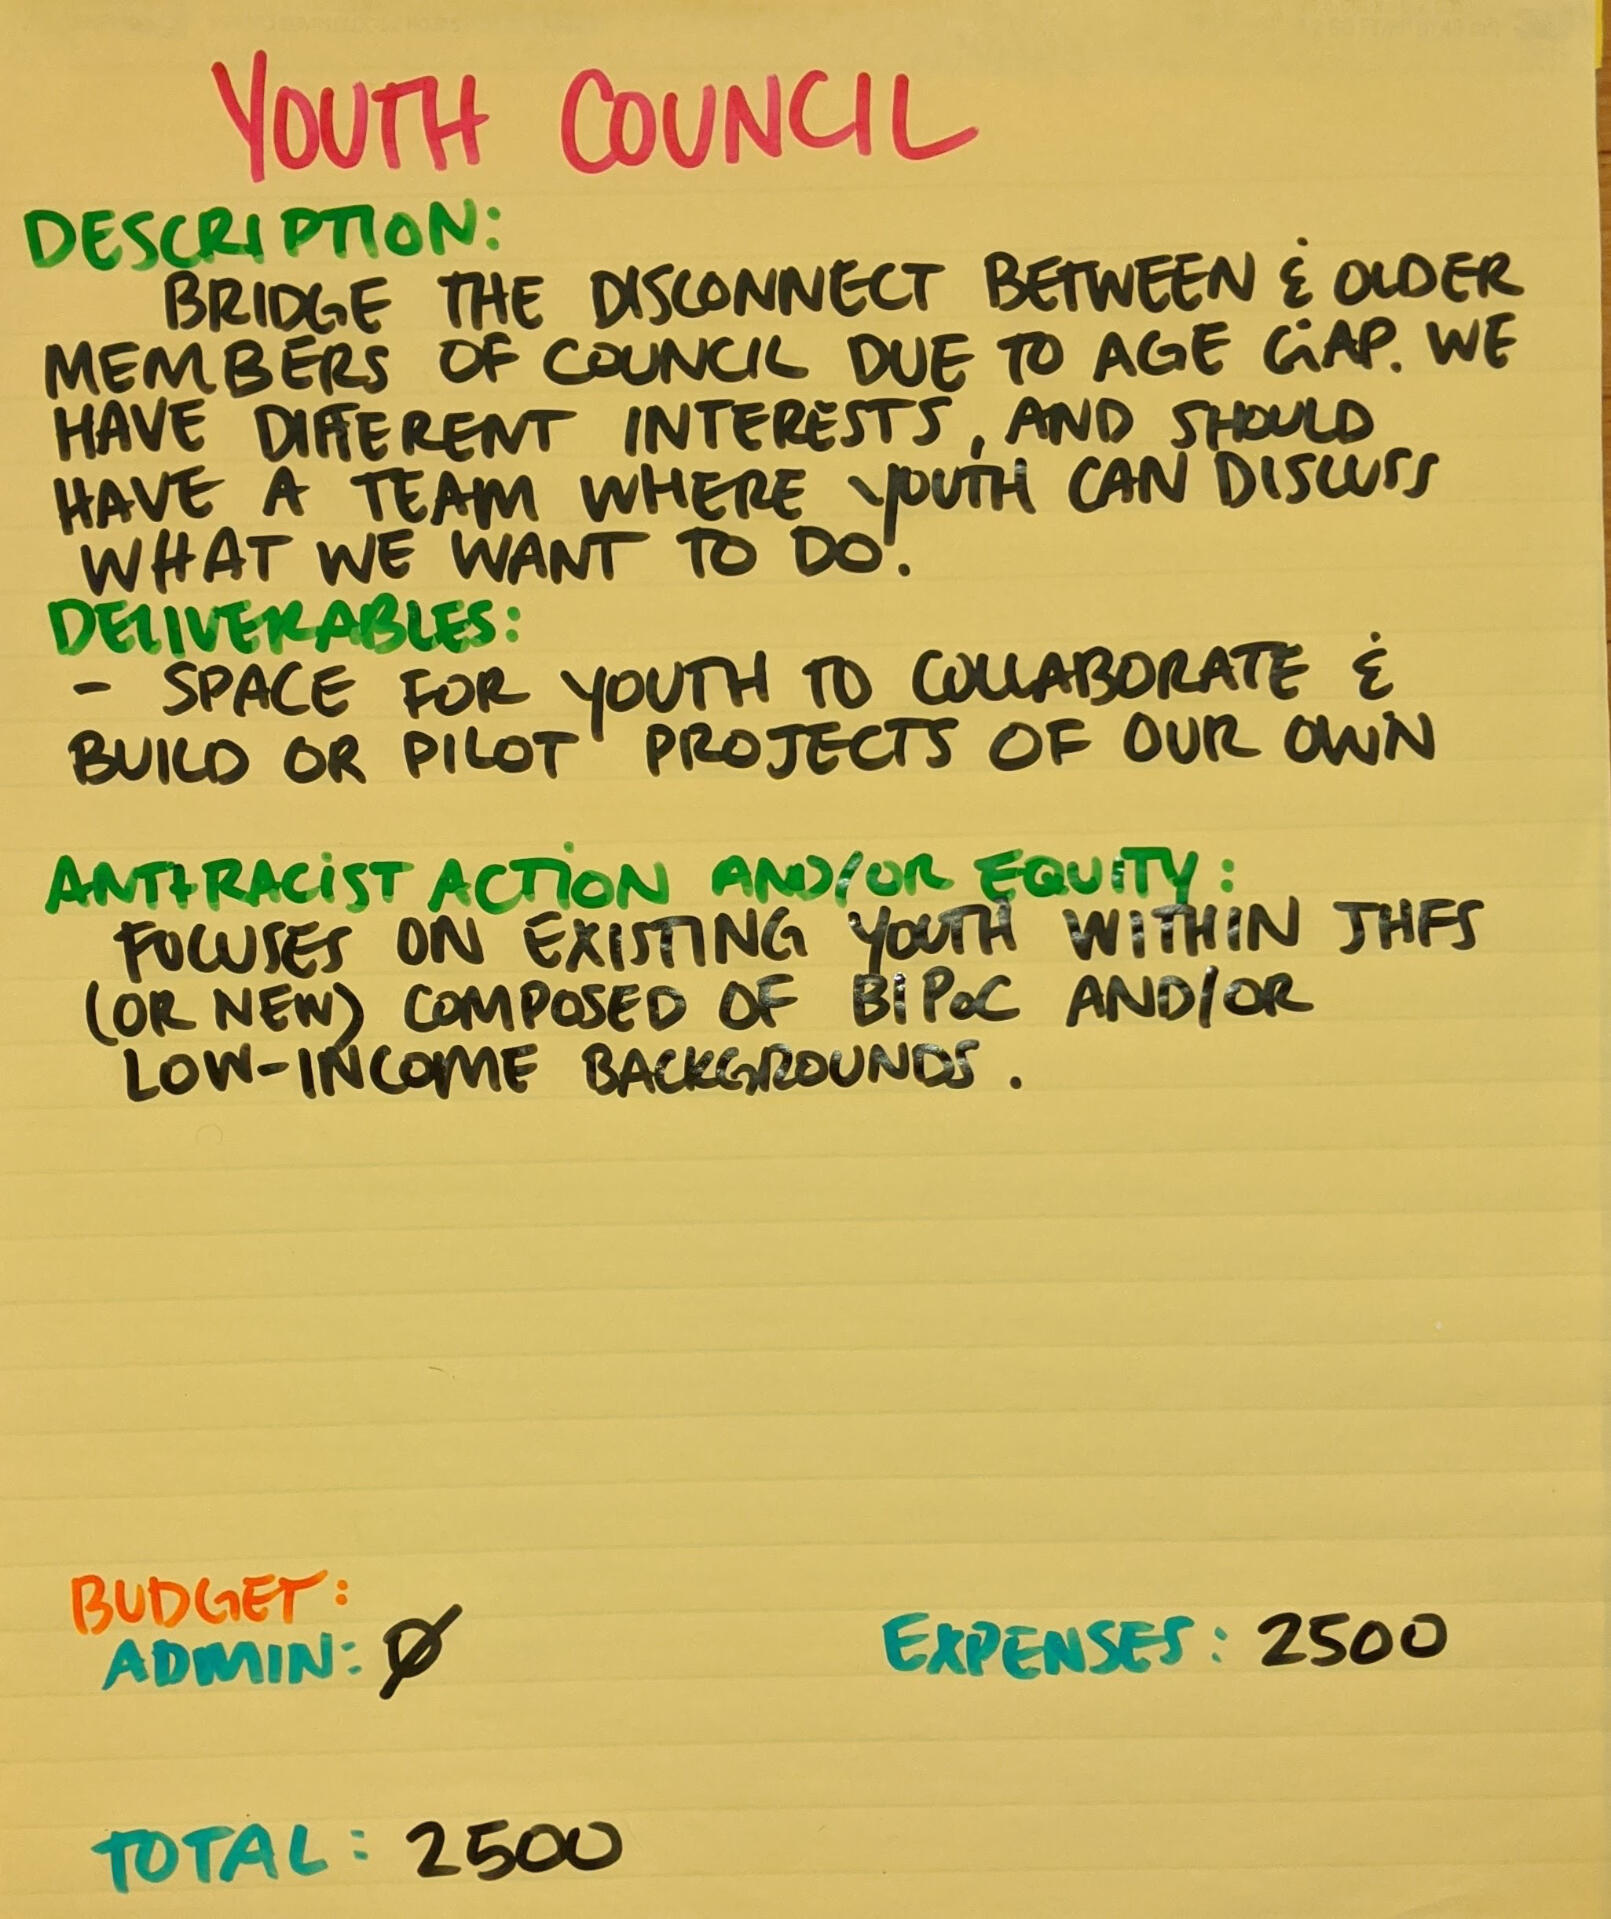 YOUTH COUNCIL
DESCRIPTION:
BRIDGE THE DISCONNECT BETWEEN & OLDER
MEMBERS OF COUNCIL DUE TO AGE GAP. WE
HAVE DIFFERENT INTERESTS, AND SHOULD
HAVE A TEAM WHERE YOUTH CAN DISCUSS
WHAT WE WANT TO DO.
DELIVERABLES:
- SPACE FOR YOUTH TO COLLABORATE &
BUILD OR PILOT PROJECTS OF OUR OWN
ANTI-RACIST ACTION AND/OR EQUITY:
FOCUSES ON EXISTING YOUTH WITHIN JHFS
(OR NEW) COMPOSED OF BIPOC AND/OR
LOW-INCOME BACKGROUNDS.
BUDGET:
ADMIN: Ø EXPENSES: 2500
TOTAL: 2500